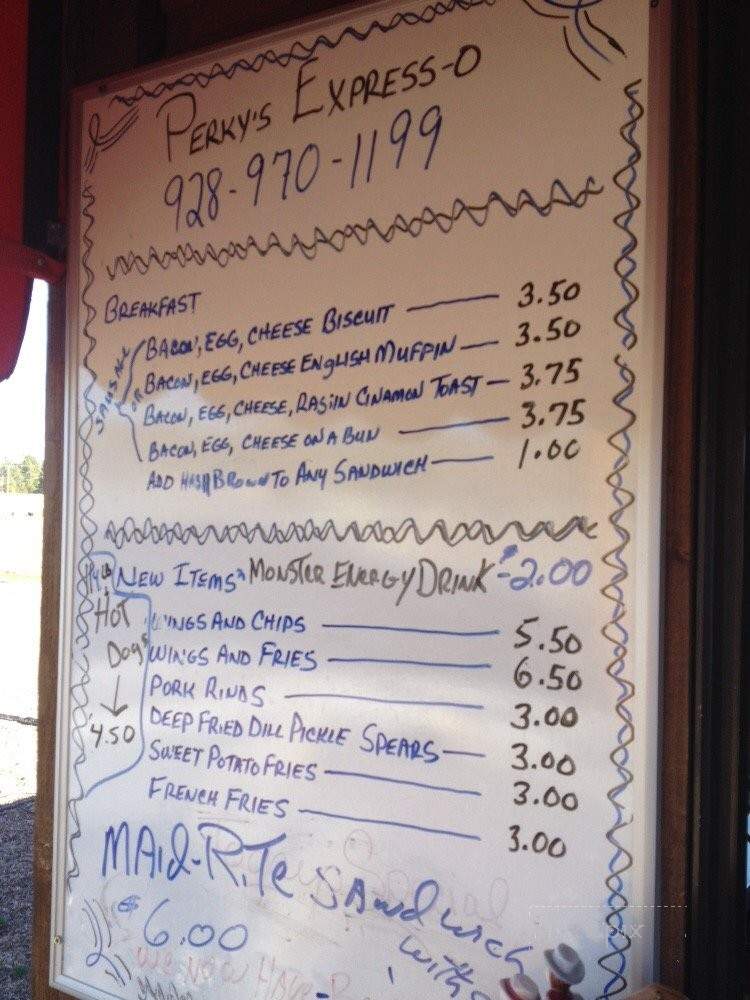 PERKY'S EXPRESS-O
928-970-1199
BREAKFAST
SAUSAGE OR
BACON, EGG, CHEESE BISCUIT 3.50
BACON, EGG, CHEESE ENGLISH MUFFPIN 3.50
BACON, EGG, CHEESE, RASIIN CINAMON TOAST 3.75
BACON, EGG, CHEESE ON A BUN 3.75
ADD HASH BROWN TO ANY SANDWICH 1.00
NEW ITEMS MONSTER ENERGY DRINK - 2.00
1/4 LB HOT DOGS 4.50
WINGS AND CHIPS 5.50
WINGS AND FRIES 6.50
PORK RINDS 3.00
DEEP FRIED DILL PICKLE SPEARS 3.00
SWEET POTATO FRIES 3.00
FRENCH FRIES 3.00
MAID-RITE SANDWICH
$6.00 WITH
WE NOW HAVE